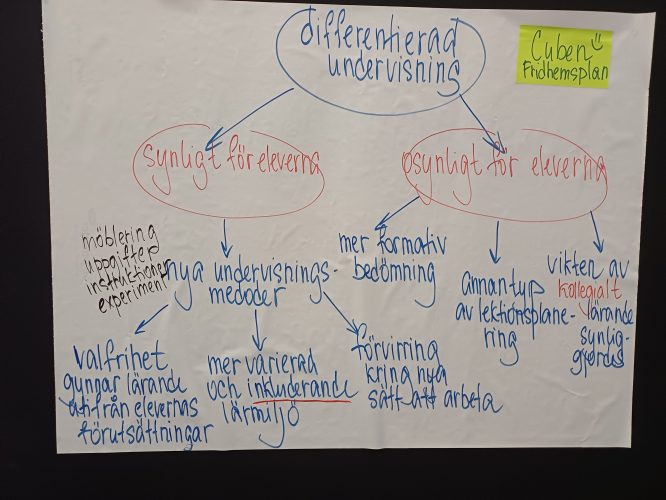 differentierad
undervisning
Cuben
Fridhemsplan
synligt för eleverna
osynligt för eleverna
möblering
uppgifter
instruktioner
experiment
nya undervisnings-
medoder
mer formativ
bedömning
annan typ
av lektionsplane-
ring
vikten av
kollegialt
lärande
synlig-
gjordes
valfrihet
gynnar lärande
utifrån elevernas
förutsättningar
mer varierad
och inkluderande
lärmiljö
förvirring
kring nya
sätt att arbeta